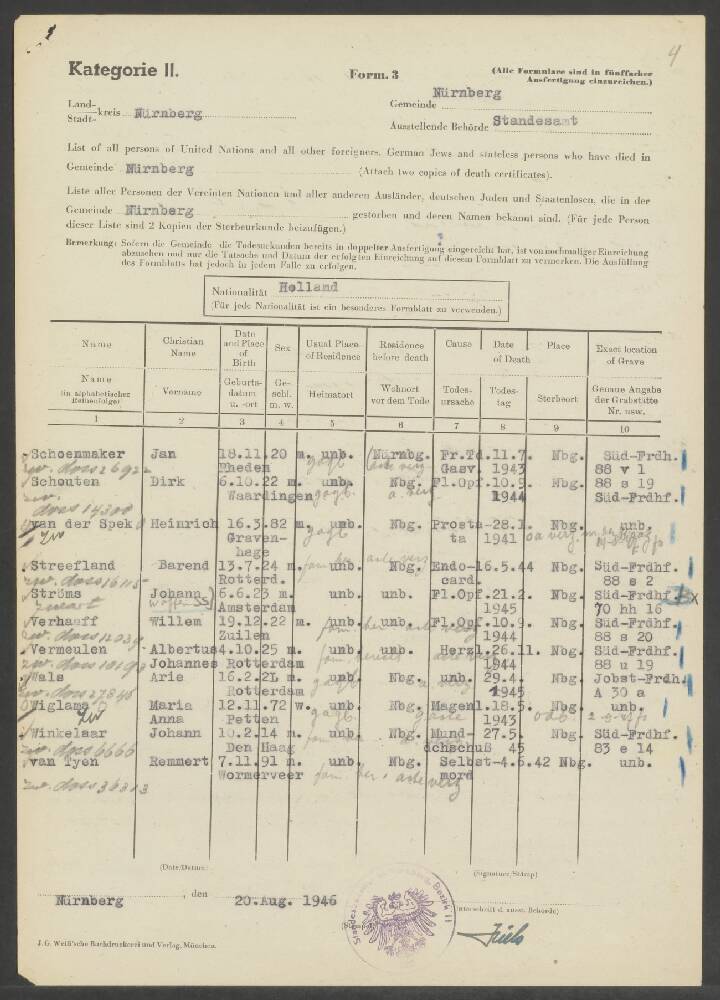 4
Kategorie II.
Form. 3
(Alle Formulare sind in fünffacher
Ausfertigung einzureichen.)
Land-
Stadt- kreis Nürnberg
Gemeinde Nürnberg
Ausstellende Behörde Standesamt
List of all persons of United Nations and all other foreigners, German Jews and stateless persons who have died in
Gemeinde Nürnberg (Attach two copies of death certificates).
Liste aller Personen der Vereinten Nationen und aller anderen Ausländer, deutschen Juden und Staatenlosen, die in der
Gemeinde Nürnberg gestorben und deren Namen bekannt sind. (Für jede Person
dieser Liste sind 2 Kopien der Sterbeurkunde beizufügen.)
Bemerkung: Sofern die Gemeinde die Todesurkunden bereits in doppelter Ausfertigung eingereicht hat, ist von nochmaliger Einreichung
abzusehen und nur die Tatsache und Datum der erfolgten Einreichung auf diesem Formblatt zu vermerken. Die Ausfüllung
des Formblatts hat jedoch in jedem Falle zu erfolgen.
Nationalität Holland
(Für jede Nationalität ist ein besonderes Formblatt zu verwenden.)
Name Christian Name Date and Place of Birth Sex Usual Place of Residence Residence before death Cause Date of Death Place Exact location of Grave
Name (in alphabetischer Reihenfolge) Vorname Geburts-datum u. -ort Ge-schl. m. w. Heimatort Wohnort vor dem Tode Todes-ursache Todes-tag Sterbeort Genaue Angabe der Grabstätte Nr. usw.
1 2 3 4 5 6 7 8 9 10
Schoenmaker Jan 18.11.20 m. unb. Nürnbg. Fr.Td. 11.7. Nbg. Süd-Frdh.
zw. doss 2692 Rheden Gasv. 1943 88 v 1
Schouten Dirk 6.10.22 m. unb. Nbg. Fl.Opf. 10.9. Nbg. 88 s 19
zw. Waardingen 1944 Süd-Frdhf.
doss 14300
van der Spek Heinrich 16.3.82 m. unb. Nbg. Prosta- 28.1. Nbg. unb.
zw Graven- ta 1941
hage
Streefland Barend 13.7.24 m. unb. Nbg. Endo- 16.5.44 Nbg. Süd-Frdhf.
zw. doss 16115 Rotterd. card. 88 s 2
Ströms Johann 6.6.23 m. unb. unb. Fl.Opf. 21.2. Nbg. Süd-Frdhf. Bx
zwart Waffen SS) Amsterdam 1945 70 hh 16
Verhaeff Willem 19.12.22 m. unb. unb. Fl.Opf. 10.9. Nbg. Süd-Frdhf.
zw. doss 12039 Zuilen 1944 88 s 20
Vermeulen Albertus 4.10.25 m. unb. unb. Herzl. 26.11. Nbg. Süd-Frdhf.
zw. doss Johannes Rotterdam 1944 88 u 19
Wals Arie 16.2.21 m. unb. Nbg. unb. 29.4. Nbg. Jobst-Frdh.
zw. doss 27846 Rotterdam 1945 A 30 a
Wiglama Maria 12.11.72 w. unb. Nbg. Magenl. 18.5. Nbg. unb.
zw Anna Petten 1943
Winkelaar Johann 10.2.14 m. unb. Nbg. Mund- 27.5. Nbg. Süd-Frdhf.
zw. doss 6666 Den Haag dchschuß 45 83 e 14
van Tyen Remmert 7.11.91 m. unb. Nbg. Selbst- 4.6.42 Nbg. unb.
zw. doss 36313 Wormerveer mord
(Date/Datum)
(Signature/Stamp)
Nürnberg, den 20. Aug. 1946
(Unterschrift d. ausst. Behörde)
J. G. Weiß'sche Buchdruckerei und Verlag, München.